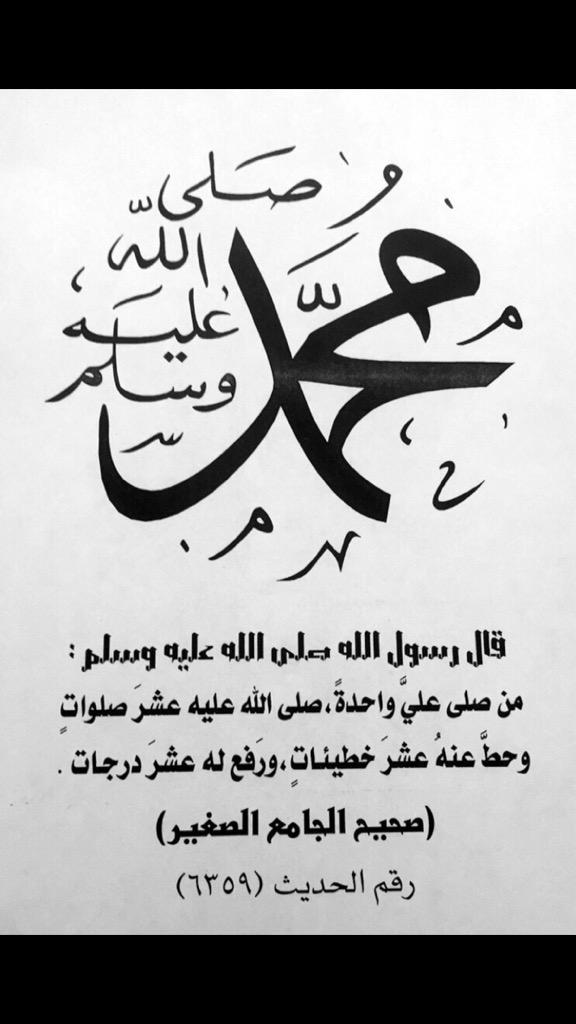 محمد
صلى
الله
عليه
وسلم
قال رسول الله صلى الله عليه وسلم :
من صلى عليَّ واحدةً، صلى الله عليه عشرَ صلواتٍ
وحطَّ عنهُ عشرَ خطيئاتٍ، ورَفع له عشرَ درجات .
(صحيح الجامع الصغير)
رقم الحديث (٦٣٥٩)